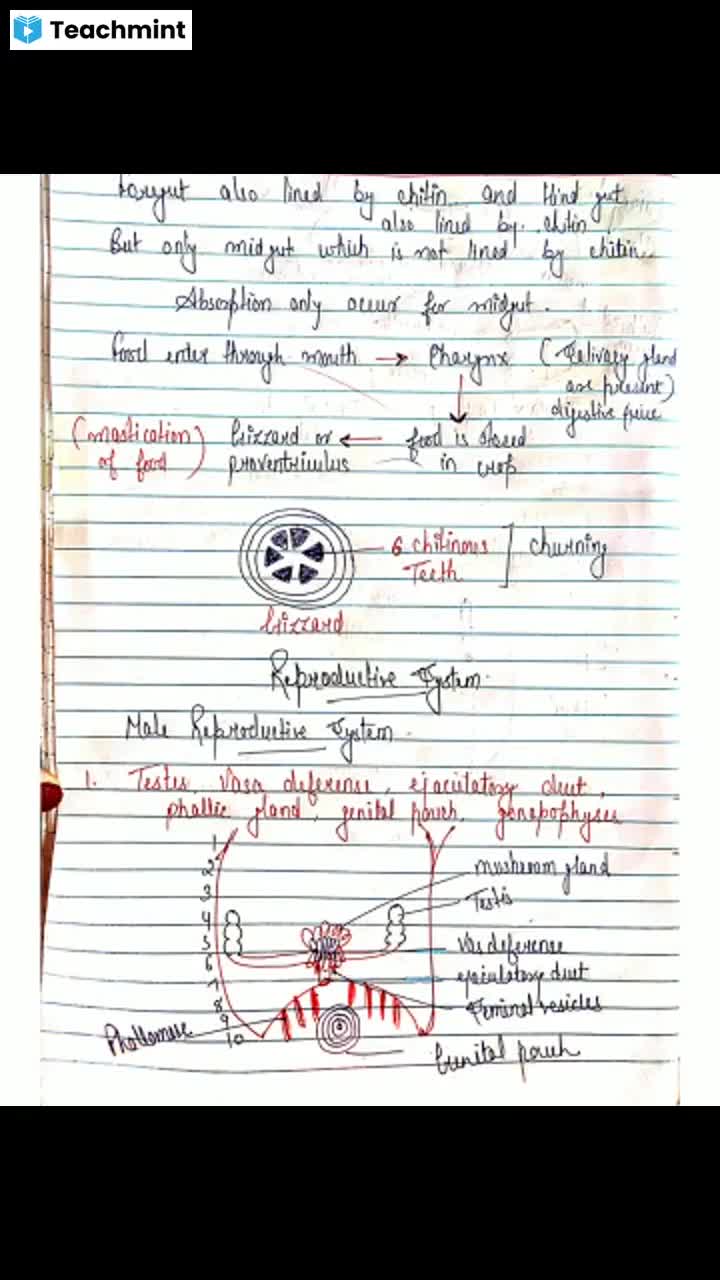 Teachmint
Foregut also lined by chitin and Hind gut
also lined by chitin
But only midgut which is not lined by chitin.
Absorption only occur for midgut.
Food enter through mouth → Pharynx (Salivary gland
are present)
digestive juice
(mastication of food) Gizzard or proventriculus ← food is stored in crop
6 chitinous Teeth ] churning
Gizzard
Reproductive System
Male Reproductive System
1. Testes, Vasa deferense, ejaculatory duct,
phallic gland, genital pouch, gonapophyses
1
2
3
4
5
6
7
8
9
10
mushroom gland
Testis
Vas deferense
ejaculatory duct
Seminal vesicles
Phallomere
Genital pouch